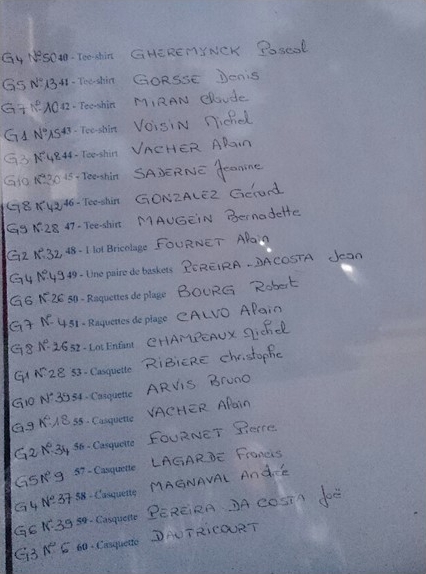 G4 N°50 40 - Tee-shirt GHEREMYNCK Pascal
G5 N°13 41 - Tee-shirt GORSSE Denis
G7 N°10 42 - Tee-shirt MIRAN Claude
G1 N°15 43 - Tee-shirt VOISIN Michel
G3 N°48 44 - Tee-shirt VACHER Alain
G10 N°20 45 - Tee-shirt SADERNE Jeanine
G8 N°42 46 - Tee-shirt GONZALEZ Gérard
G9 N°28 47 - Tee-shirt MAUGEIN Bernadette
G2 N°32 48 - 1 lot Bricolage FOURNET Alain
G4 N°49 49 - Une paire de baskets PEREIRA-DACOSTA Jean
G6 N°26 50 - Raquettes de plage BOURG Robert
G7 N°4 51 - Raquettes de plage CALVO Alain
G8 N°26 52 - Lot Enfant CHAMPEAUX Michel
G1 N°28 53 - Casquette RIBIERE Christophe
G10 N°39 54 - Casquette ARVIS Bruno
G9 N°18 55 - Casquette VACHER Alain
G2 N°34 56 - Casquette FOURNET Pierre
G5 N°9 57 - Casquette LAGARDE Francis
G4 N°37 58 - Casquette MAGNAVAL André
G6 N°39 59 - Casquette PEREIRA DA COSTA Joë
G3 N°6 60 - Casquette DAUTRICOURT